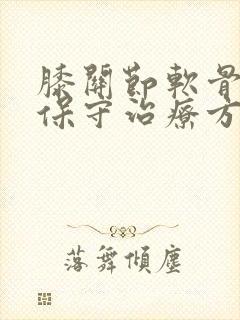 膝關節軟骨
保守治療方
落舞傾塵